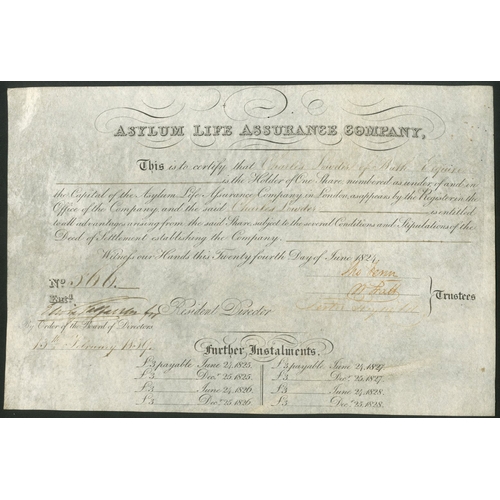 ASYLUM LIFE ASSURANCE COMPANY,
This is to certify that Charles Lowder of Bath Esquire
is the Holder of One Share numbered as under of and in
the Capital of the Asylum Life Assurance Company in London, as appears by the Register in the
Office of the Company, and the said Charles Lowder is entitled
to all advantages arising from the said Share, subject to the several Conditions and Stipulations of the
Deed of Settlement establishing the Company.
Witness our Hands this Twenty fourth Day of June 1824.
No. 366
Entd.
Resident Director
Trustees
By Order of the Board of Directors
February
Further Instalments.
£3 payable June 24, 1825. £3 payable June 24, 1827.
£3 Decr. 25, 1825. £3 Decr. 25, 1827.
£3 June 24, 1826. £3 June 24, 1828.
£3 Decr. 25, 1826. £3 Decr. 25, 1828.